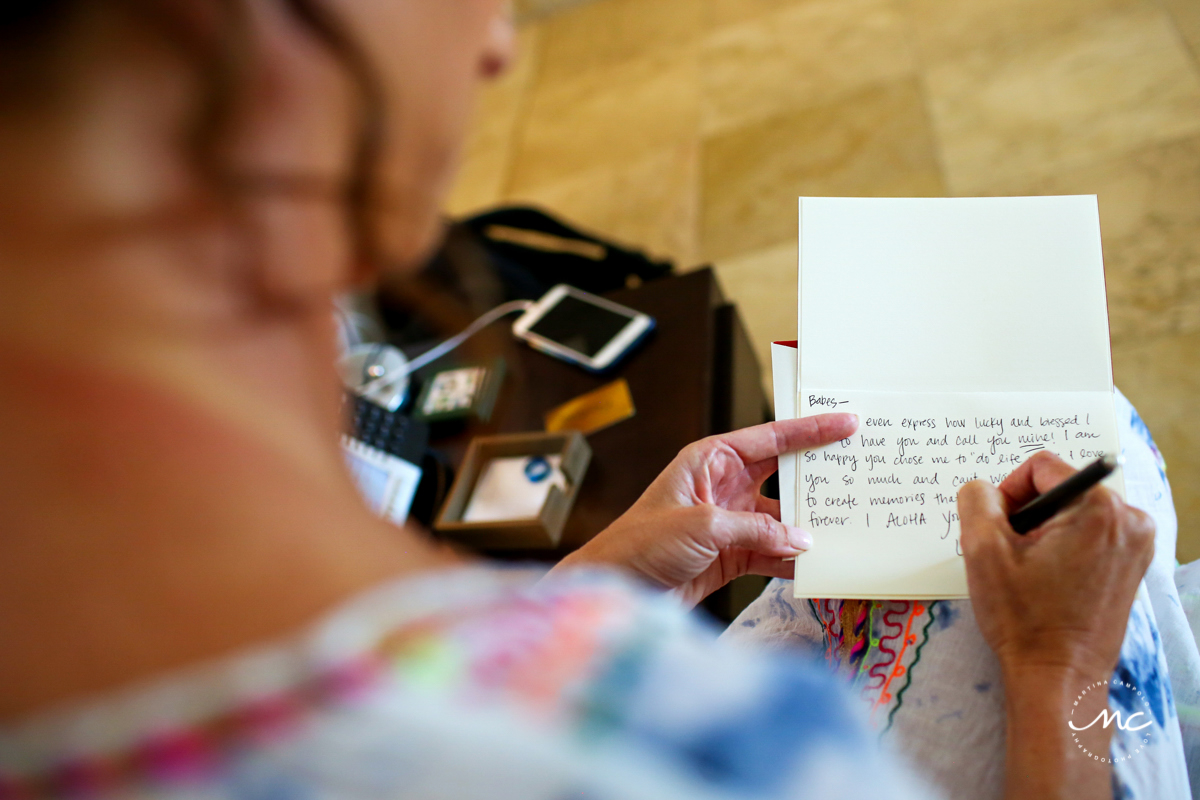 Babes—
even express how lucky and blessed I
to have you and call you mine! I am
so happy you chose me to "do life & love
you so much and cant
to create memories that
forever. I ALOHA
MC
MARTINA CAMPOLO
PHOTOGRAPHY